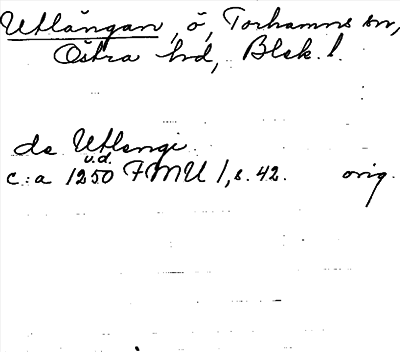 Utlängan, ö, Torhamns sn,
Östra hd, Blek. l.
de Utlengi
u.d.
c:a 1250 FMU 1, s. 42. orig.